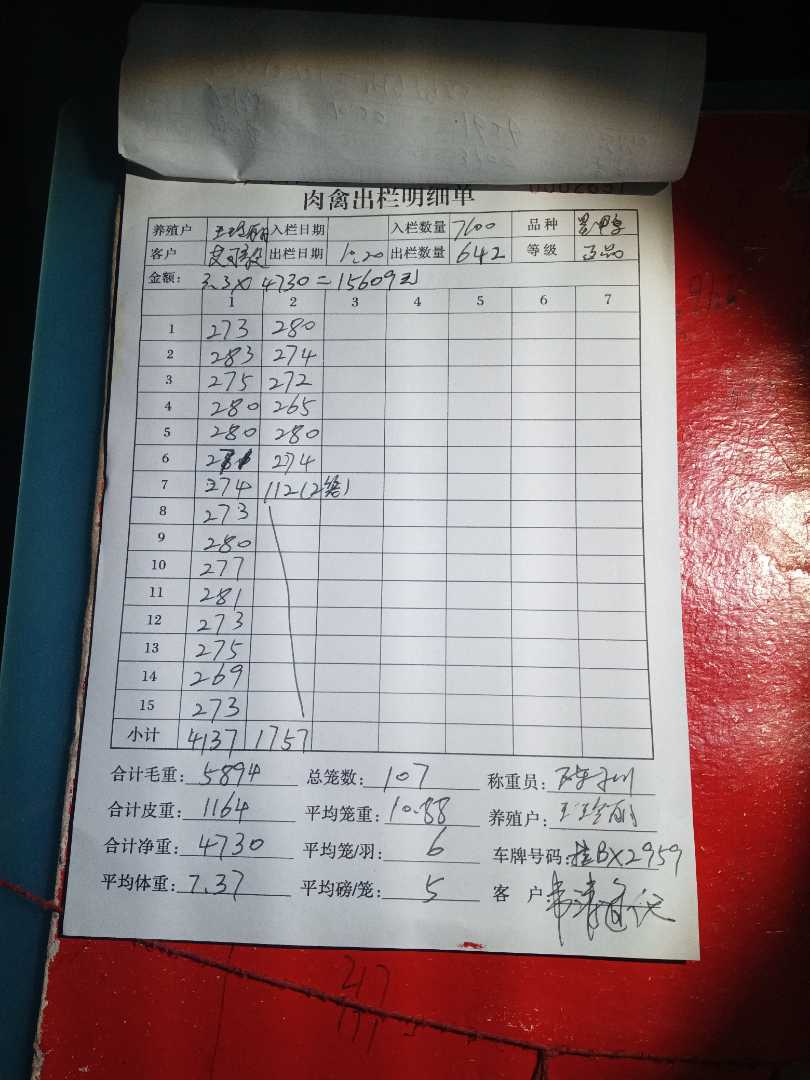 肉禽出栏明细单
养殖户 王珍丽 入栏日期 入栏数量 7600 品种
客户 出栏日期 10.20 出栏数量 642 等级 正品
金额: 3.3×4730=15609元
1 2 3 4 5 6 7
1 273 280
2 283 274
3 275 272
4 280 265
5 280 280
6 274
7 274 112(2笼)
8 273
9 280
10 277
11 281
12 273
13 275
14 269
15 273
小计 4137 1757
合计毛重: 5894 总笼数: 107 称重员:
合计皮重: 1164 平均笼重: 10.88 养殖户: 王珍丽
合计净重: 4730 平均笼/羽: 6 车牌号码: 桂BX2959
平均体重: 7.37 平均磅/笼: 5 客 户: